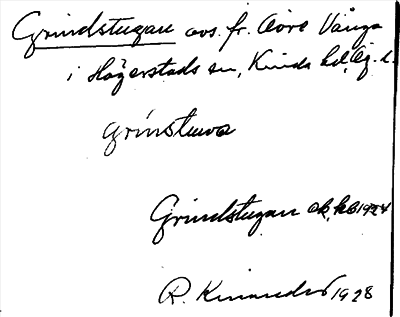 Grindstugan avs. fr. Övre Vånga
i Högerstads sn, Kinda hd, Ög. l.
grinstuwa
Grindstugan ek. kb 1924
R. 1928